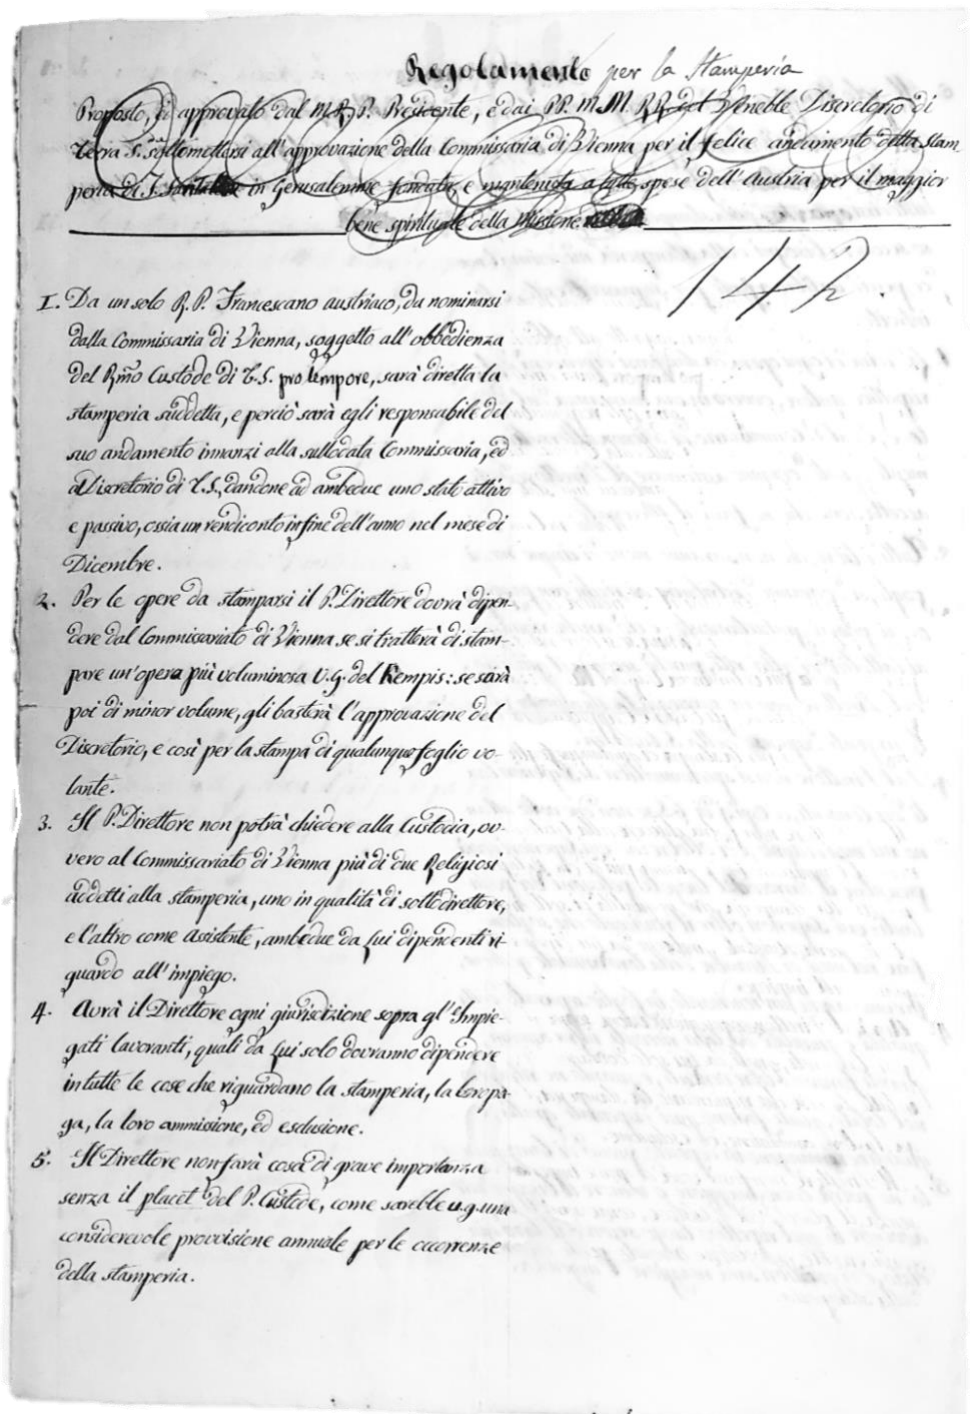 Regolamento per la Stamperia
Proposto, ed approvato dal M. R. P. Presidente, e dai PP. M. M. RR. del Veneble Discretorio di
Terra S. sottomettersi all'approvazione della Commissaria di Vienna per il felice andamento detta Stam-
peria di T. Santa in Gerusalemme fondata, e mantenuta a tutte spese dell'Austria per il maggior
bene spirituale della Missione.
142.
1. Da un solo R. P. Francescano austriaco, da nominarsi
dalla Commissaria di Vienna, soggetto all'obbedienza
del Rmo Custode di T. S. pro tempore, sarà diretta la
stamperia suddetta, e perciò sarà egli responsabile del
suo andamento innanzi alla sullodata Commissaria, ed
al Discretorio di T. S., dandone ad ambedue uno stato attivo
e passivo, ossia un rendiconto in fine dell'anno nel mese di
Dicembre.
2. Per le opere da stamparsi il P. Direttore dovrà dipen-
dere dal Commissariato di Vienna se si tratterà di stam-
pare un'opera più voluminosa v. g. del Kempis: se sarà
poi di minor volume, gli basterà l'approvazione del
Discretorio, e così per la stampa di qualunque foglio vo-
lante.
3. Il P. Direttore non potrà chiedere alla Custodia, ov-
vero al Commissariato di Vienna più di due Religiosi
addetti alla stamperia, uno in qualità di sottodirettore,
e l'altro come Assistente, ambedue da Lui dipendenti ri-
guardo all'impiego.
4. Avrà il Direttore ogni giurisdizione sopra gl'Impie-
gati lavoranti, quali da Lui solo dovranno dipendere
in tutte le cose che riguardano la stamperia, la loro pa-
ga, la loro ammissione, ed esclusione.
5. Il Direttore non farà cosa di grave importanza
senza il placet del P. Custode, come sarebbe v. g. una
considerevole provvisione annuale per le occorrenze
della stamperia.